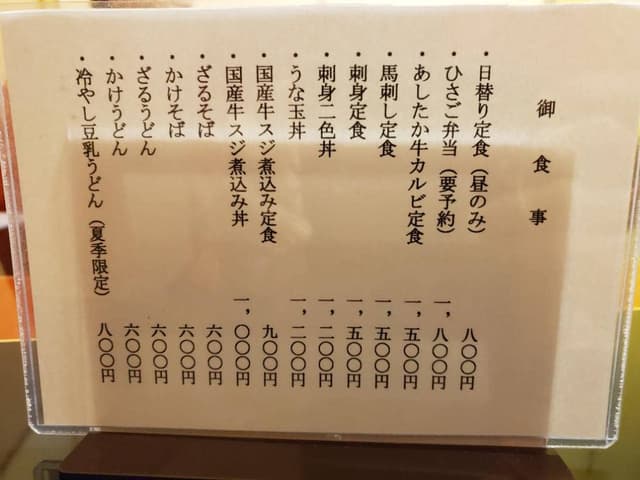 御食事
・日替り定食（昼のみ） 八〇〇円
・ひさご弁当（要予約） 一，八〇〇円
・あしたか牛カルビ定食 一，五〇〇円
・馬刺し定食 一，五〇〇円
・刺身定食 一，五〇〇円
・刺身二色丼 一，二〇〇円
・うな玉丼 一，二〇〇円
・国産牛スジ煮込み定食 九〇〇円
・国産牛スジ煮込み丼 一，〇〇〇円
・ざるそば 六〇〇円
・かけそば 六〇〇円
・ざるうどん 六〇〇円
・かけうどん 六〇〇円
・冷やし豆乳うどん（夏季限定） 八〇〇円